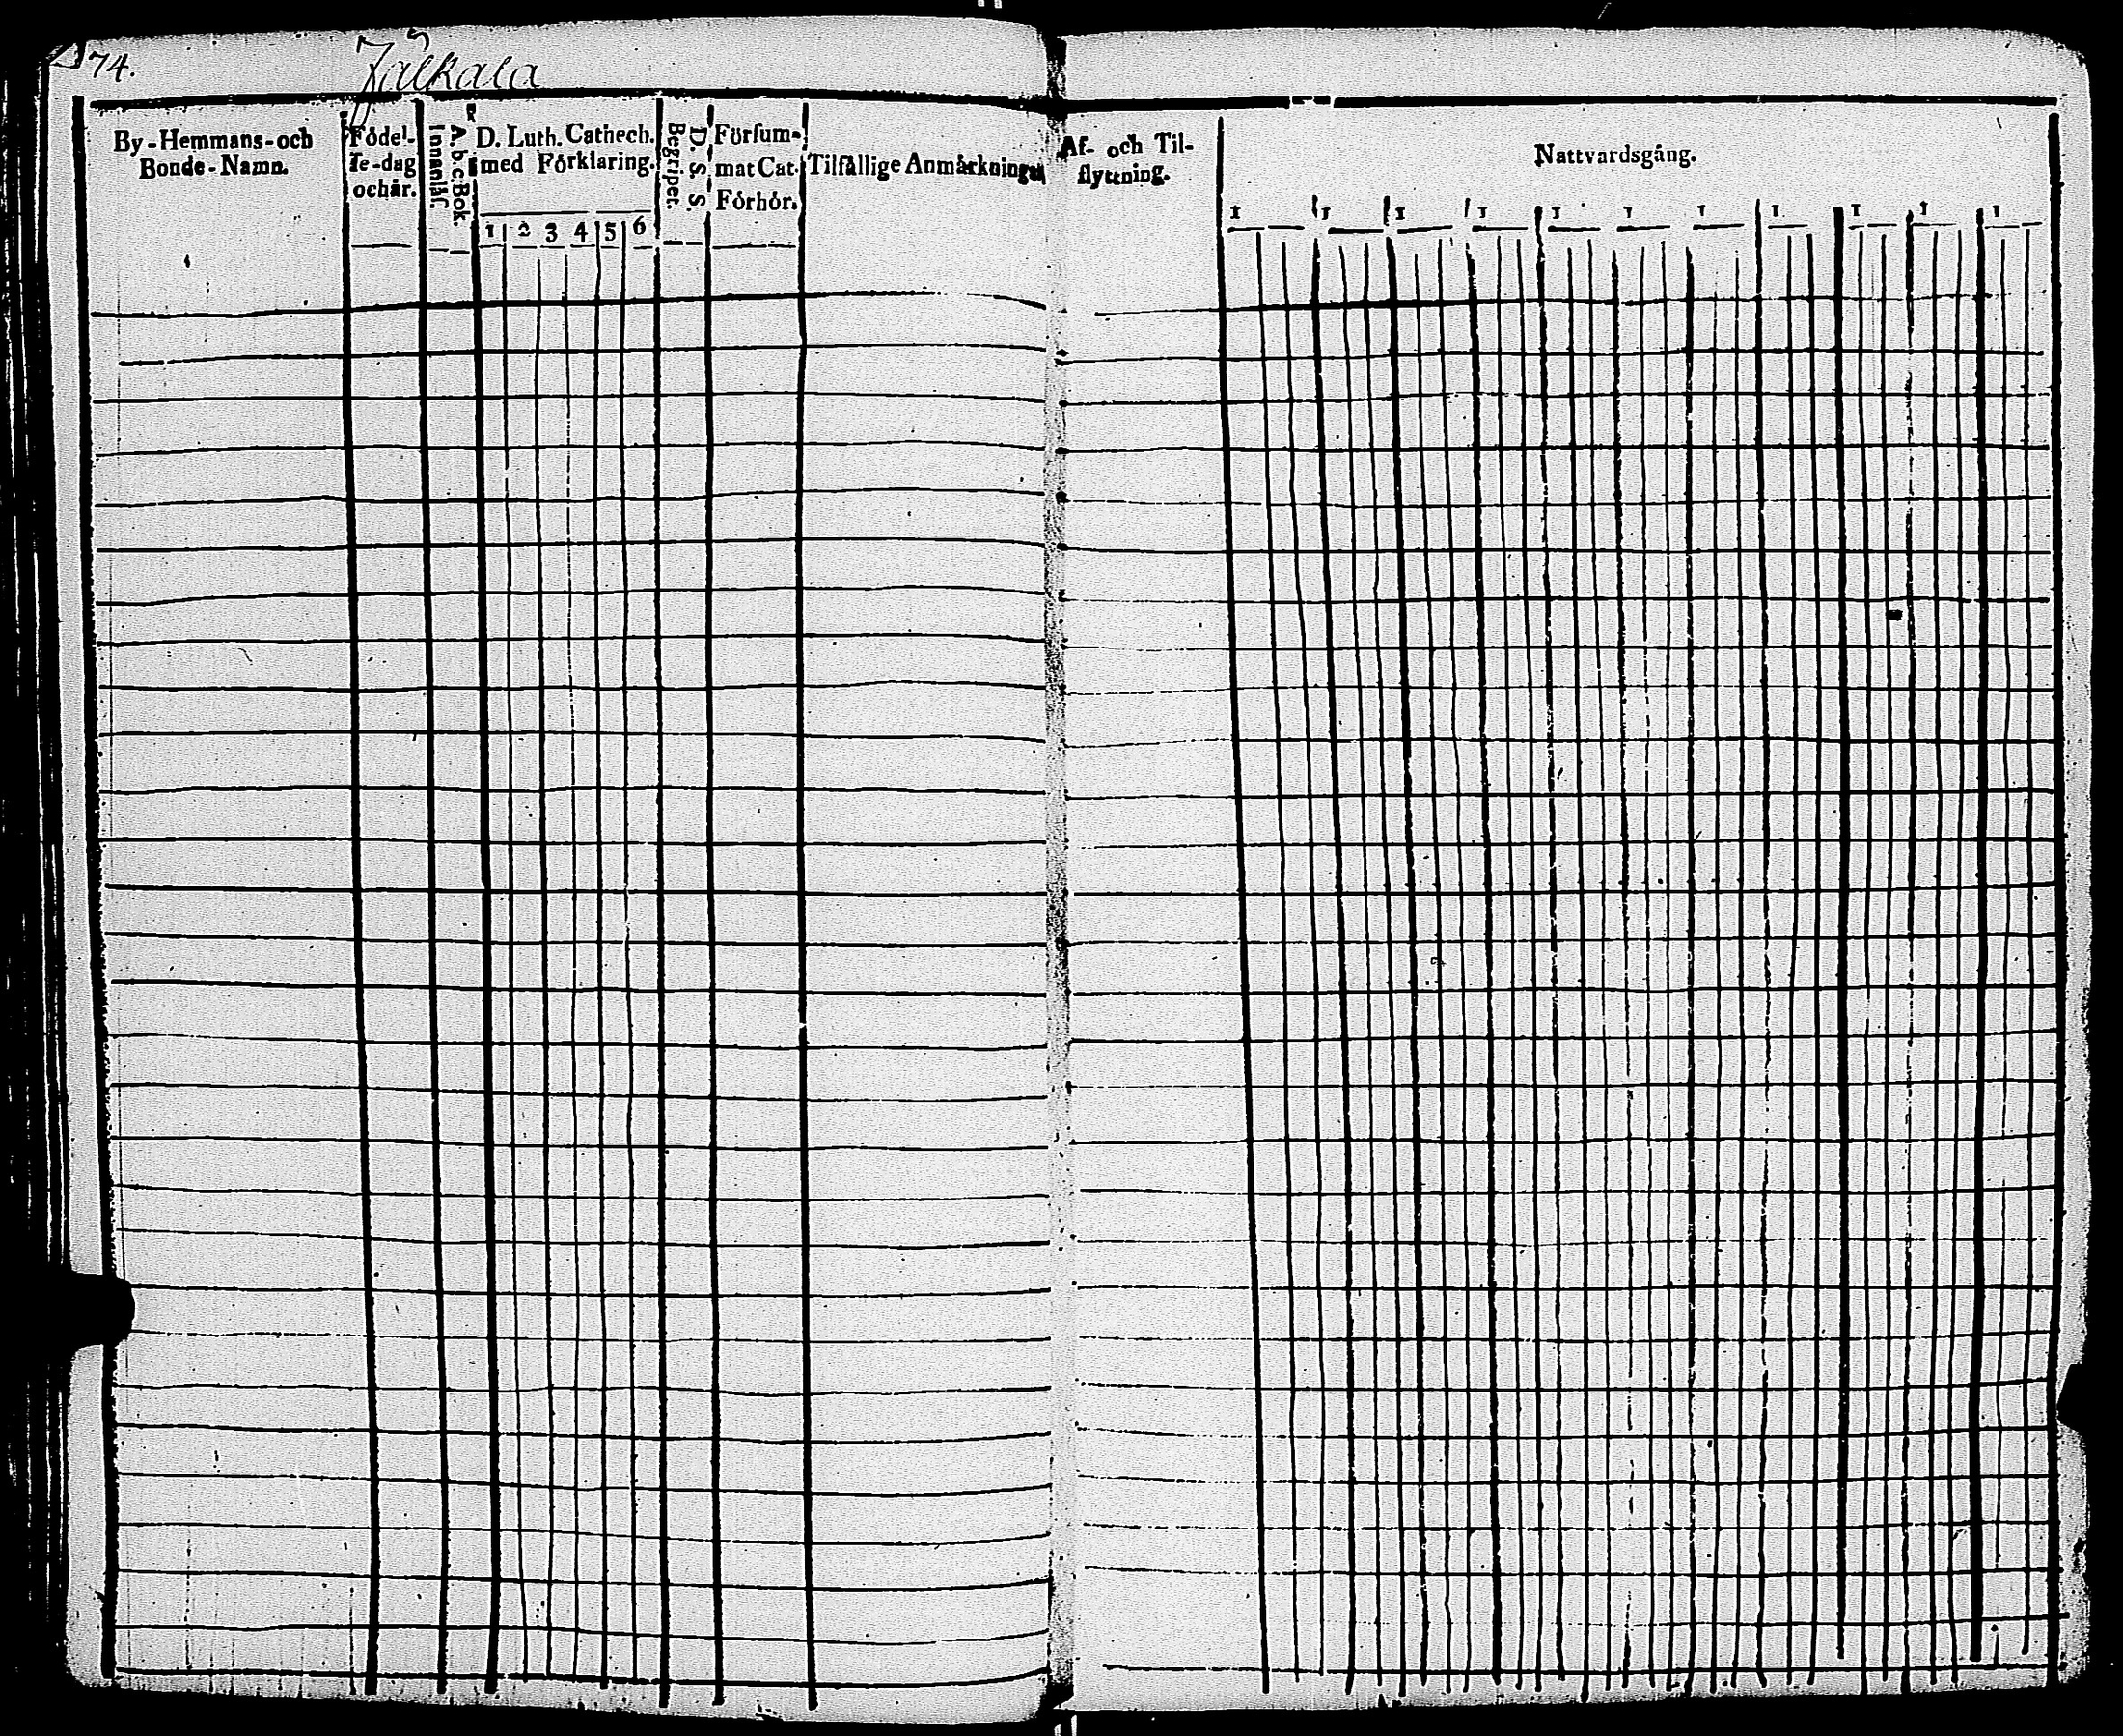 74.
Jälkala
By-Hemmans-och
Bonde-Namn.
Födel-
se-dag
och år.
Innanläs.
A. b. c. Bok.
D. Luth. Cathech.
med Förklaring.
1 2 3 4 5 6
Begripet.
D. S. S.
Försum-
mat Cat.
Förhör.
Tilfällige Anmärkningar
Af- och Til-
flyttning.
Nattvardsgång.
1 1 1 1 1 1 1 1 1 1 1